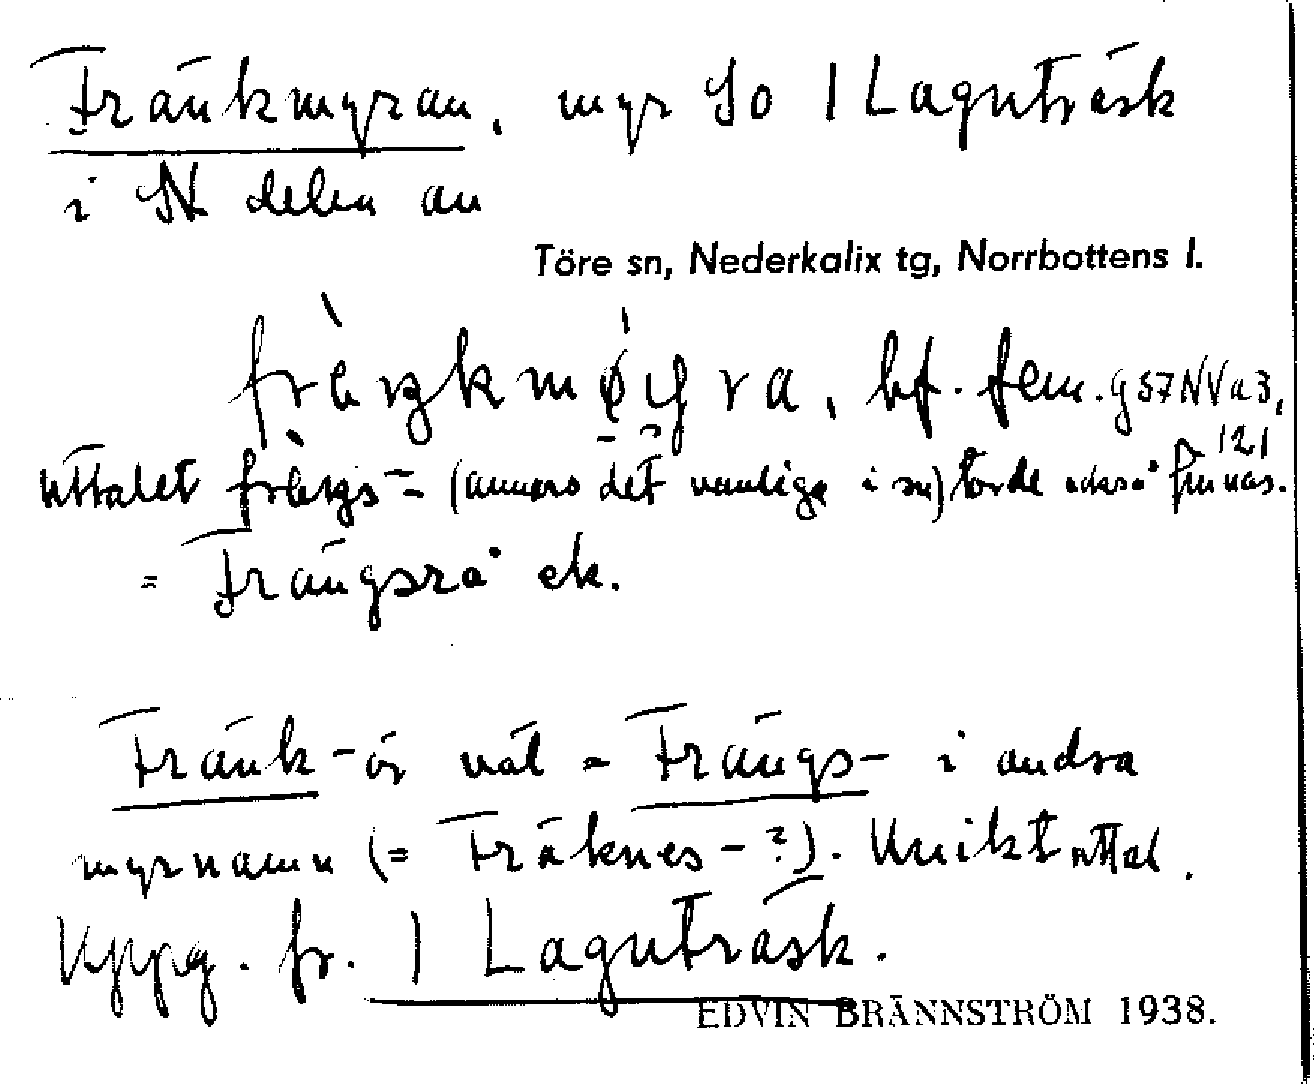 Fränkmyran, myr So 1 Lagnträsk
i N delen av
Töre sn, Nederkalix tg, Norrbottens l.
bf. fem. g S7NVa3,
121
uttalet frängs- (annars det vanliga i sn) torde också finnas.
= Frängsrå ek.
Fränk- är väl = Frängs- i andra
myrnamn (= Fräknes- ?). Unikt uttal.
Uppg. fr. 1 Lagnträsk.
EDVIN BRÄNNSTRÖM 1938.